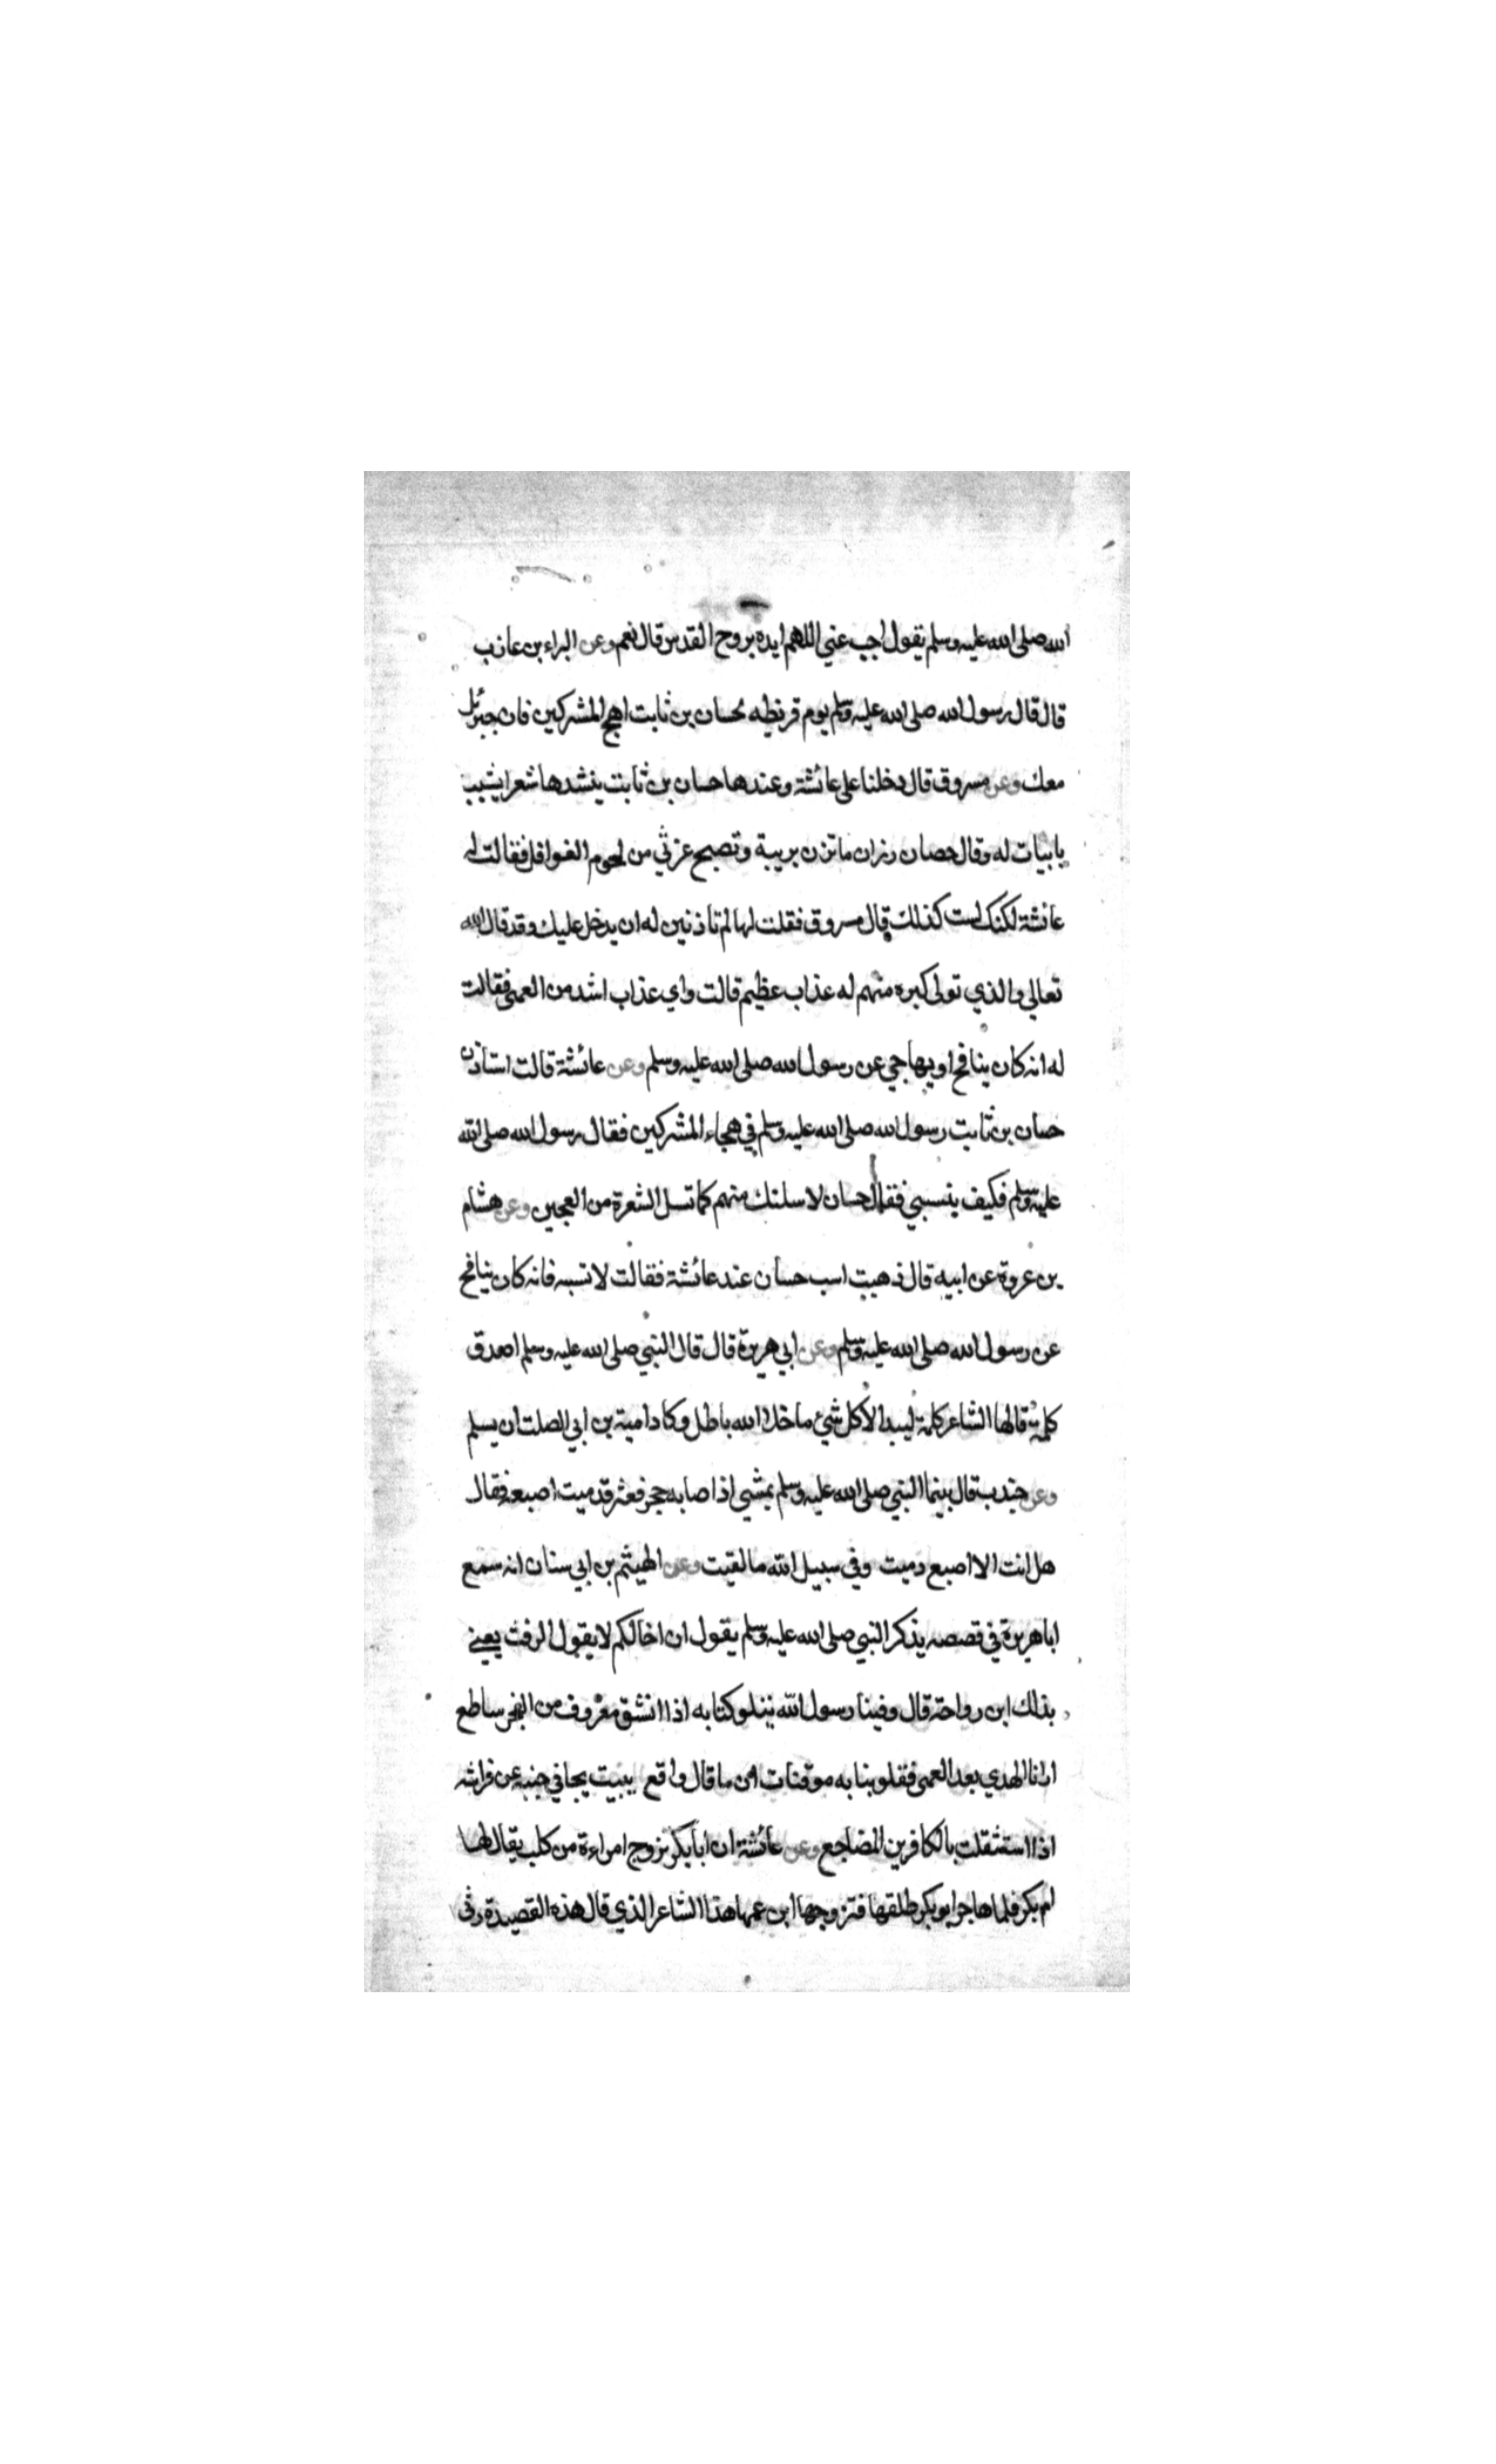 الله صلى الله عليه وسلم يقول اجب عني اللهم ايده بروح القدس قال نعم وعن البراء بن عازب
قال قال رسول الله صلى الله عليه وسلم يوم قريظه لحسان بن ثابت اهج المشركين فان جبرئيل
معك وعن مسروق قال دخلنا على عائشة وعندها حسان بن ثابت ينشدها شعرا يشبب
بابيات له وقال حصان رزان ما تزن بريبة وتصبح غرثي من لحوم الغوافل فقالت له
عائشة لكنك لست كذلك قال مسروق فقلت لها لم تاذنين له ان يدخل عليك وقد قال الله
تعالى والذي تولى كبره منهم له عذاب عظيم قالت واي عذاب اشد من العمى فقالت
له انه كان ينافح او يهاجي عن رسول الله صلى الله عليه وسلم وعن عائشة قالت استاذن
حسان بن ثابت رسول الله صلى الله عليه وسلم في هجاء المشركين فقال رسول الله صلى الله
عليه وسلم فكيف ينسبي فقال حسان لاسلنك منهم كما تسل الشعرة من العجين وعن هشام
بن عروة عن ابيه قال ذهبت اسب حسان عند عائشة فقالت لا تسبه فانه كان ينافح
عن رسول الله صلى الله عليه وسلم وعن ابي هريرة قال قال النبي صلى الله عليه وسلم اصدق
كلمة قالها الشاعر كلمة لبيد الا كل شئ ما خلا الله باطل وكاد امية بن ابي الصلت ان يسلم
وعن جندب قال بينما النبي صلى الله عليه وسلم يمشي اذ اصابه حجر فعثر قدميت اصبعه فقال
هل انت الا اصبع دميت وفي سبيل الله ما لقيت وعن الهيثم بن ابي سنان انه سمع
ابا هريرة في قصصه يذكر النبي صلى الله عليه وسلم يقول ان اخا لكم لا يقول الرفث يعني
بذلك ابن رواحة قال وفينا رسول الله يتلو كتابه اذا انشق معروف من الفجر ساطع
ارانا الهدي بعد العمى فقلوبنا به موقنات ان ما قال واقع يبيت يجافي جنبه عن فراشه
اذا استثقلت بالكافرين المضاجع وعن عائشة ان ابا بكر تزوج امراءة من كلب يقال لها
ام بكر فلما هاجر ابو بكر طلقها فتزوجها ابن عمها هذا الشاعر الذي قال هذه القصيدة رثى